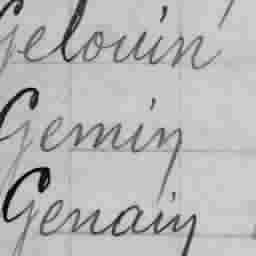 Gelouin
Gemin
Genain